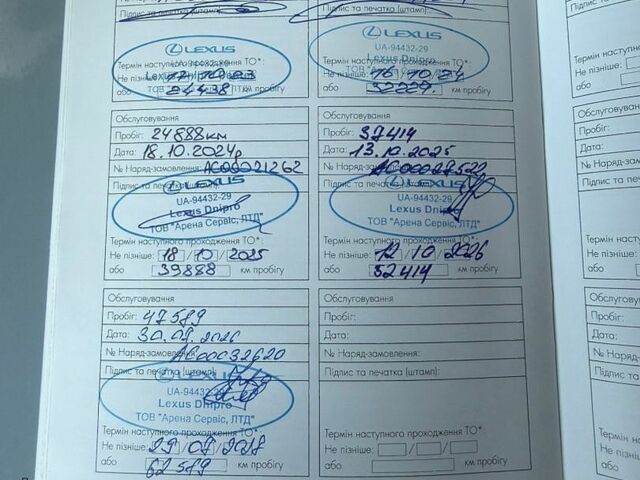 Підпис та печатка (штамп):
LEXUS
UA-94432-29
Термін наступного проходження ТО*:
Lexus
Не пізніше:
або 24438 км пробігу
Підпис та печатка (штамп):
LEXUS
UA-94432-29
Lexus Dnipro
Термін наступного проходження ТО*:
Не пізніше: 16/10/24
або 32229. км пробігу
Обслуговування
Пробіг: 24888км
Дата: 18.10.2024р
№ Наряд-замовлення: АС00021262
Підпис та печатка (штамп):
LEXUS
UA-94432-29
Lexus Dnipro
ТОВ "Арена Сервіс, ЛТД"
Термін наступного проходження ТО*:
Не пізніше: 18/10/2025
або 39888 км пробігу
Обслуговування
Пробіг: 37414
Дата: 13.10.2025
№ Наряд-замовлення: АС00027522
Підпис та печатка (штамп):
LEXUS
UA-94432-29
Lexus Dnipro
ТОВ "Арена Сервіс, ЛТД"
Термін наступного проходження ТО*:
Не пізніше: 12/10/2026
або 52414 км пробігу
Обслуговування
Пробіг: 47589
Дата: 30.07.2026
№ Наряд-замовлення: АС00032620
Підпис та печатка (штамп):
UA-94432-29
Lexus Dnipro
ТОВ "Арена Сервіс, ЛТД"
Термін наступного проходження ТО*:
Не пізніше: 29/07/2027
або 62589 км пробігу
Обслуговування
Пробіг:
Дата:
№ Наряд-замовлення:
Підпис та печатка (штамп):
Термін наступного проходження ТО*:
Не пізніше:
або км пробігу
Підпис та
Термін наступного
Не пізніше:
або
Обслуговування
Пробіг:
Дата:
№ Наряд-зам
Підпис та печ
Термін наступн
Не пізніше:
або
Обслуговува
Пробіг:
Дата:
№ Наряд-
Підпис та
Термін нас
Не пізніше
або